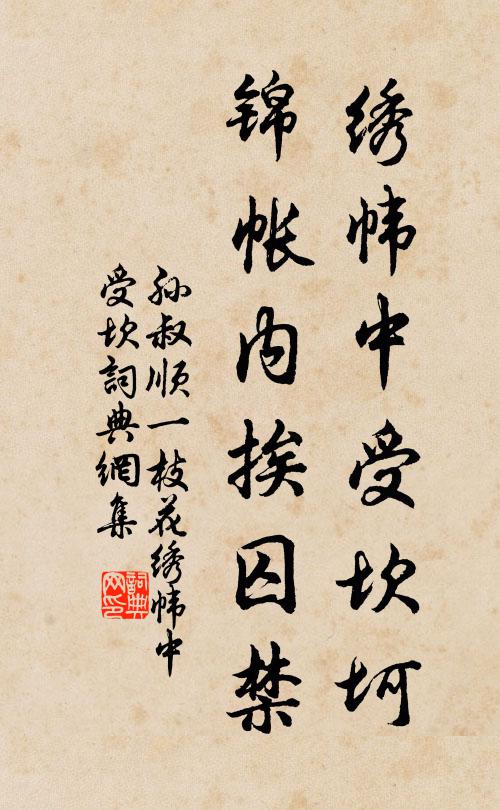 绣帏中受坎坷
锦帐内挨囚禁
孙叔顺一枝花绣帏中
受坎詞典網集
詞典网印